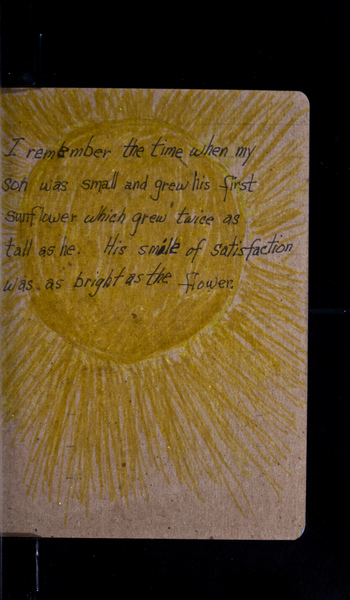 I remember the time when my
son was small and grew his first
sunflower which grew twice as
tall as he. His smile of satisfaction
was as bright as the flower.